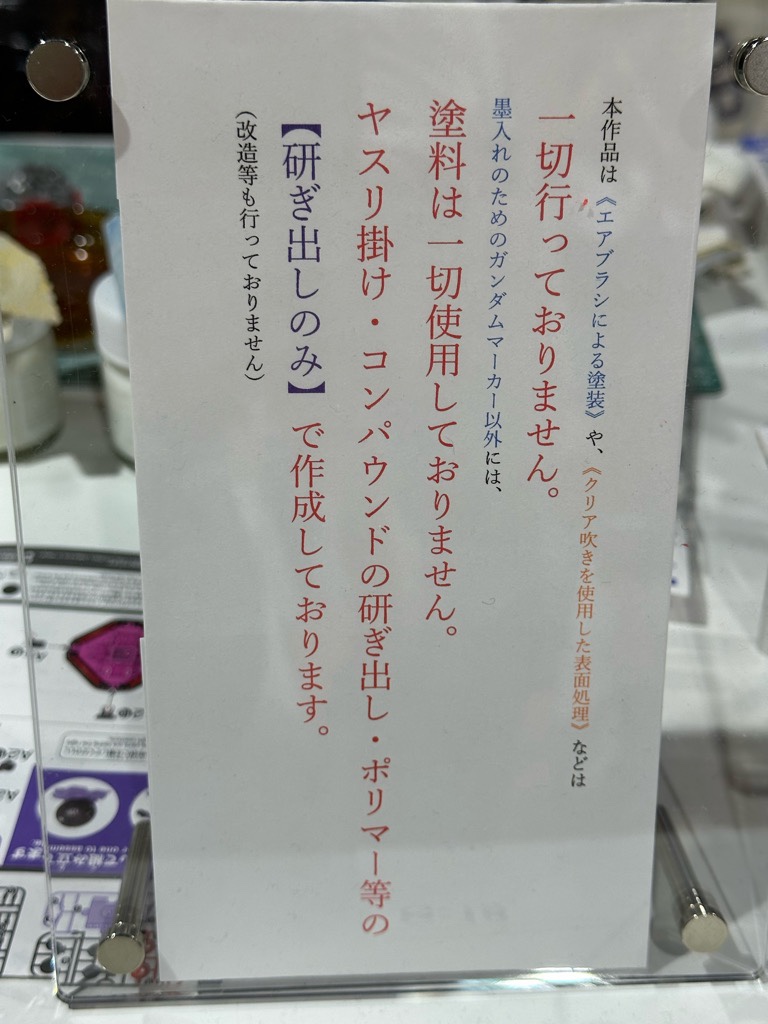 本作品は《エアブラシによる塗装》や、《クリア吹きを使用した表面処理》などは
一切行っておりません。
墨入れのためのガンダムマーカー以外には、
塗料は一切使用しておりません。
ヤスリ掛け・コンパウンドの研ぎ出し・ポリマー等の
【研ぎ出しのみ】で作成しております。
（改造等も行っておりません）